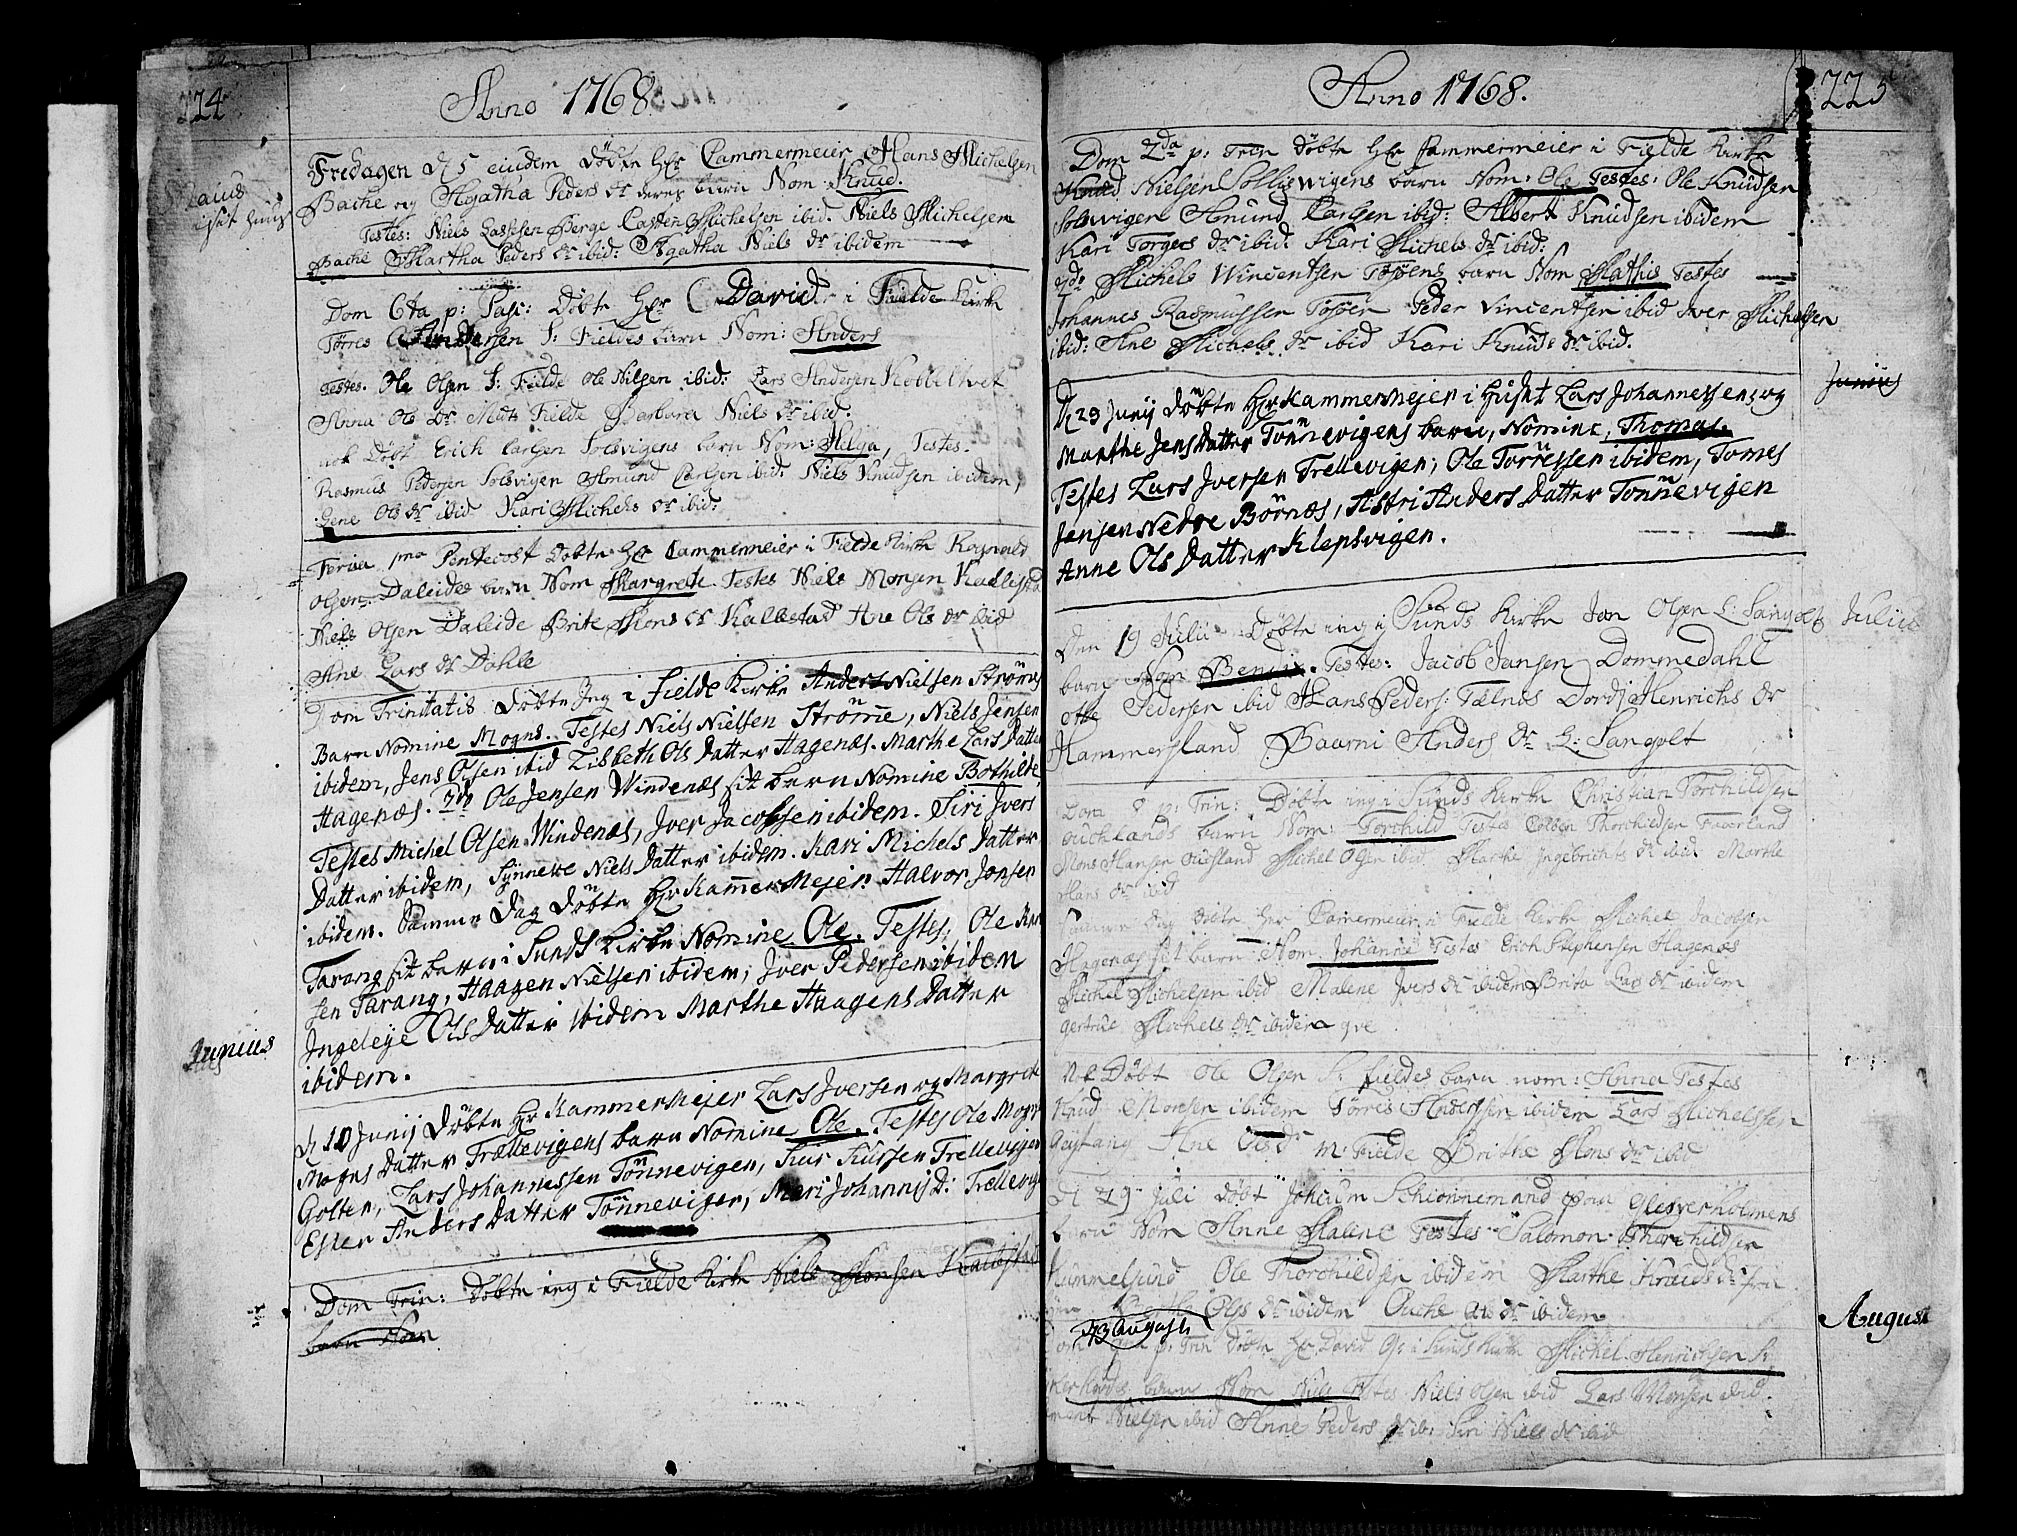 224
Anno 1768
Maius
Fredagen d 5 eiusdem Döbte Hr Cammermeier Hans Michelsen
Bache og Agatha Peders dr deres barn Nom: Knud.
Testes: Niels Lassesen Berge Casten Michelsen ibid. Niels Michelsen
Bache Martha Peders dr ibid: Agatha Niels dr ibidem
Dom 6ta p: Pasc: Döbte Hr David i Fielde Kirke
Törres Andersen S: Fieldes barn Nom: Anders
Testes. Ole Olsen S: Fielde Ole Nilsen ibid: Lars Andersen Kobbeltvet
Anna Ols dr Mit Fielde Barbara Niels dr ibid.
nok Döbt Erich Carlsen Solsvigens barn Nom: Helga, Testes.
Rasmus Pedersen Solsvigen Amund Carlsen ibid: Niels Knudsen ibidem,
Gene Ols dr ibid Kari Michels dr ibid:
Feria 1ma Pentecost Döbte Hr Cammermeier i Fielde Kirke Rognald
Olsen Daleides barn Nom Margrete. Testes Niels Monsen Kallestad
Niels Olsen Daleide Brite Mons dr Kallestad Ane Ols dr ibid
Ane Lars dr Dahle
Dom Trinitatis Döbte Jeg i Fielde Kirke Anders Nielsen Strömes
Barn Nomine Mogns. Testes Niels Nielsen Strömе, Niels Jensen
ibidem, Jens Olsen ibid Lisbeth Ols Datter Hagenæs. Marthe Lars Datter
Hagenæs. 2do Ole Jensen Windenæs sit barn Nomine Bothilde,
Testes Michel Olsen Windenæs, Jver Jacobsen ibidem. Siri Jvers
Datter ibidem, Synneve Niels Datter ibidem. Kari Michels Datter
ibidem. Samme Dag Döbte Hr KammerMejer Halvor Jonsen
Tarang sit barn i Sunds Kirke Nomine Ole. Testes, Ole
sen Tarang, Haagen Nielsen ibidem, Jver Pedersen ibidem
Jngeleje Ols Datter ibidem Marthe Haagens Datter
ibidem.
Junius
d 10 Junij Döbte Hr KammerMejer Lars Jversen og Margrete
Mogns Datter Trællevigens barn Nomine Ole. Testes Ole Mogns
Golten, Lars Johannessen Tönnevigen, Siur Siursen Trellevigen
Ester Anders Datter Tönnevigen, Mari Johannis D: Trellevig
Dom Trin: Döbte ieg i Fielde Kirke Niels Monsen Kallestad
barn Nom
Anno 1768.
225
Dom 2da p: Trin Döbte Hr Cammermeier i Fielde Kirke
Knud Nielsen Sollisvigens barn Nom: Ole Testes: Ole Knudsen
Solsvigen Amund Carlsen ibid: Albert Knudsen ibidem
Kari Torgers dr ibid: Kari Michels dr ibid:
2do Michels Wincentsen Tösöens barn Nom Mathis Testes
Johannes Rasmussen Tösöen Peder Vincentsen ibid Jver Michelsen
ibid: Ane Michels dr ibid Kari Knuds dr ibid.
Junius
d 29 Junij Döbte Hr KammerMejer i Hust Lars Johannessens og
Marthe Jens Datter Tönnevigens barn, Nomine, Thomas.
Testes Lars Jversen Trellevigen, Ole Torressen ibidem, Tomes
Jensen Nedre Börnæs, Astri Anders Datter Tönnevigen
Anne Ols Datter Klepsvigen.
Den 19 Julii Döbte ieg i Sunds Kirke Jon Olsen L: Sangolt Julii
barn Nom Bendix. Testes: Jacob Jansen Dommedahl
Ole Pedersen ibid Hans Peders: Tælnes Dordj Henrichs dr
Hammersland Baarni Anders dr L: Sangolt
Dom 8 p: Trin: Döbte ieg i Sunds Kirke Christian Torchildsen
Ouchlands barn Nom: Torchild Testes Colben Thorchildsen
Mons Hansen Michel Olsen ibid, Marthe Ingebrichts dr ibid Marthe
Hans dr ibid
Samme Dag Döbte Hr Camermeier i Fielde Kirke Michel Jacobsen
Hagenæs sit barn Nom Johanne Testes Erich Stephensen Hagenæs
Michel Michelsen ibid Malene Jvers dr ibidem Brita Lars dr ibidem
gertrue Michels dr ibidem
Nok Döbt Ole Olsen S: fieldes barn nom: Anna Testes
Knud Monsen ibidem Törres Andersen ibidem Lars Michelssen
Ane Ols dr M: Fielde Brithe Mons dr ibid
d 29 Juli Döbt Jochum Schionnemand paa Glesverholmens
barn Nom Anne Malene Testes Salomon Thorchildsen
Hummelsund Ole Thorchildsen ibidem Marthe Knuds dr
Ols dr ibidem Ouche Ols dr ibidem
August
p: Trin Döbte Hr David i Sunds Kirke Michel Henrichsen
barn Nom Niels Testes Niels Olsen ibid Lars Monsen ibid.
Nielsen ibid Anne Peders dr ib: Siri Niels dr ibid